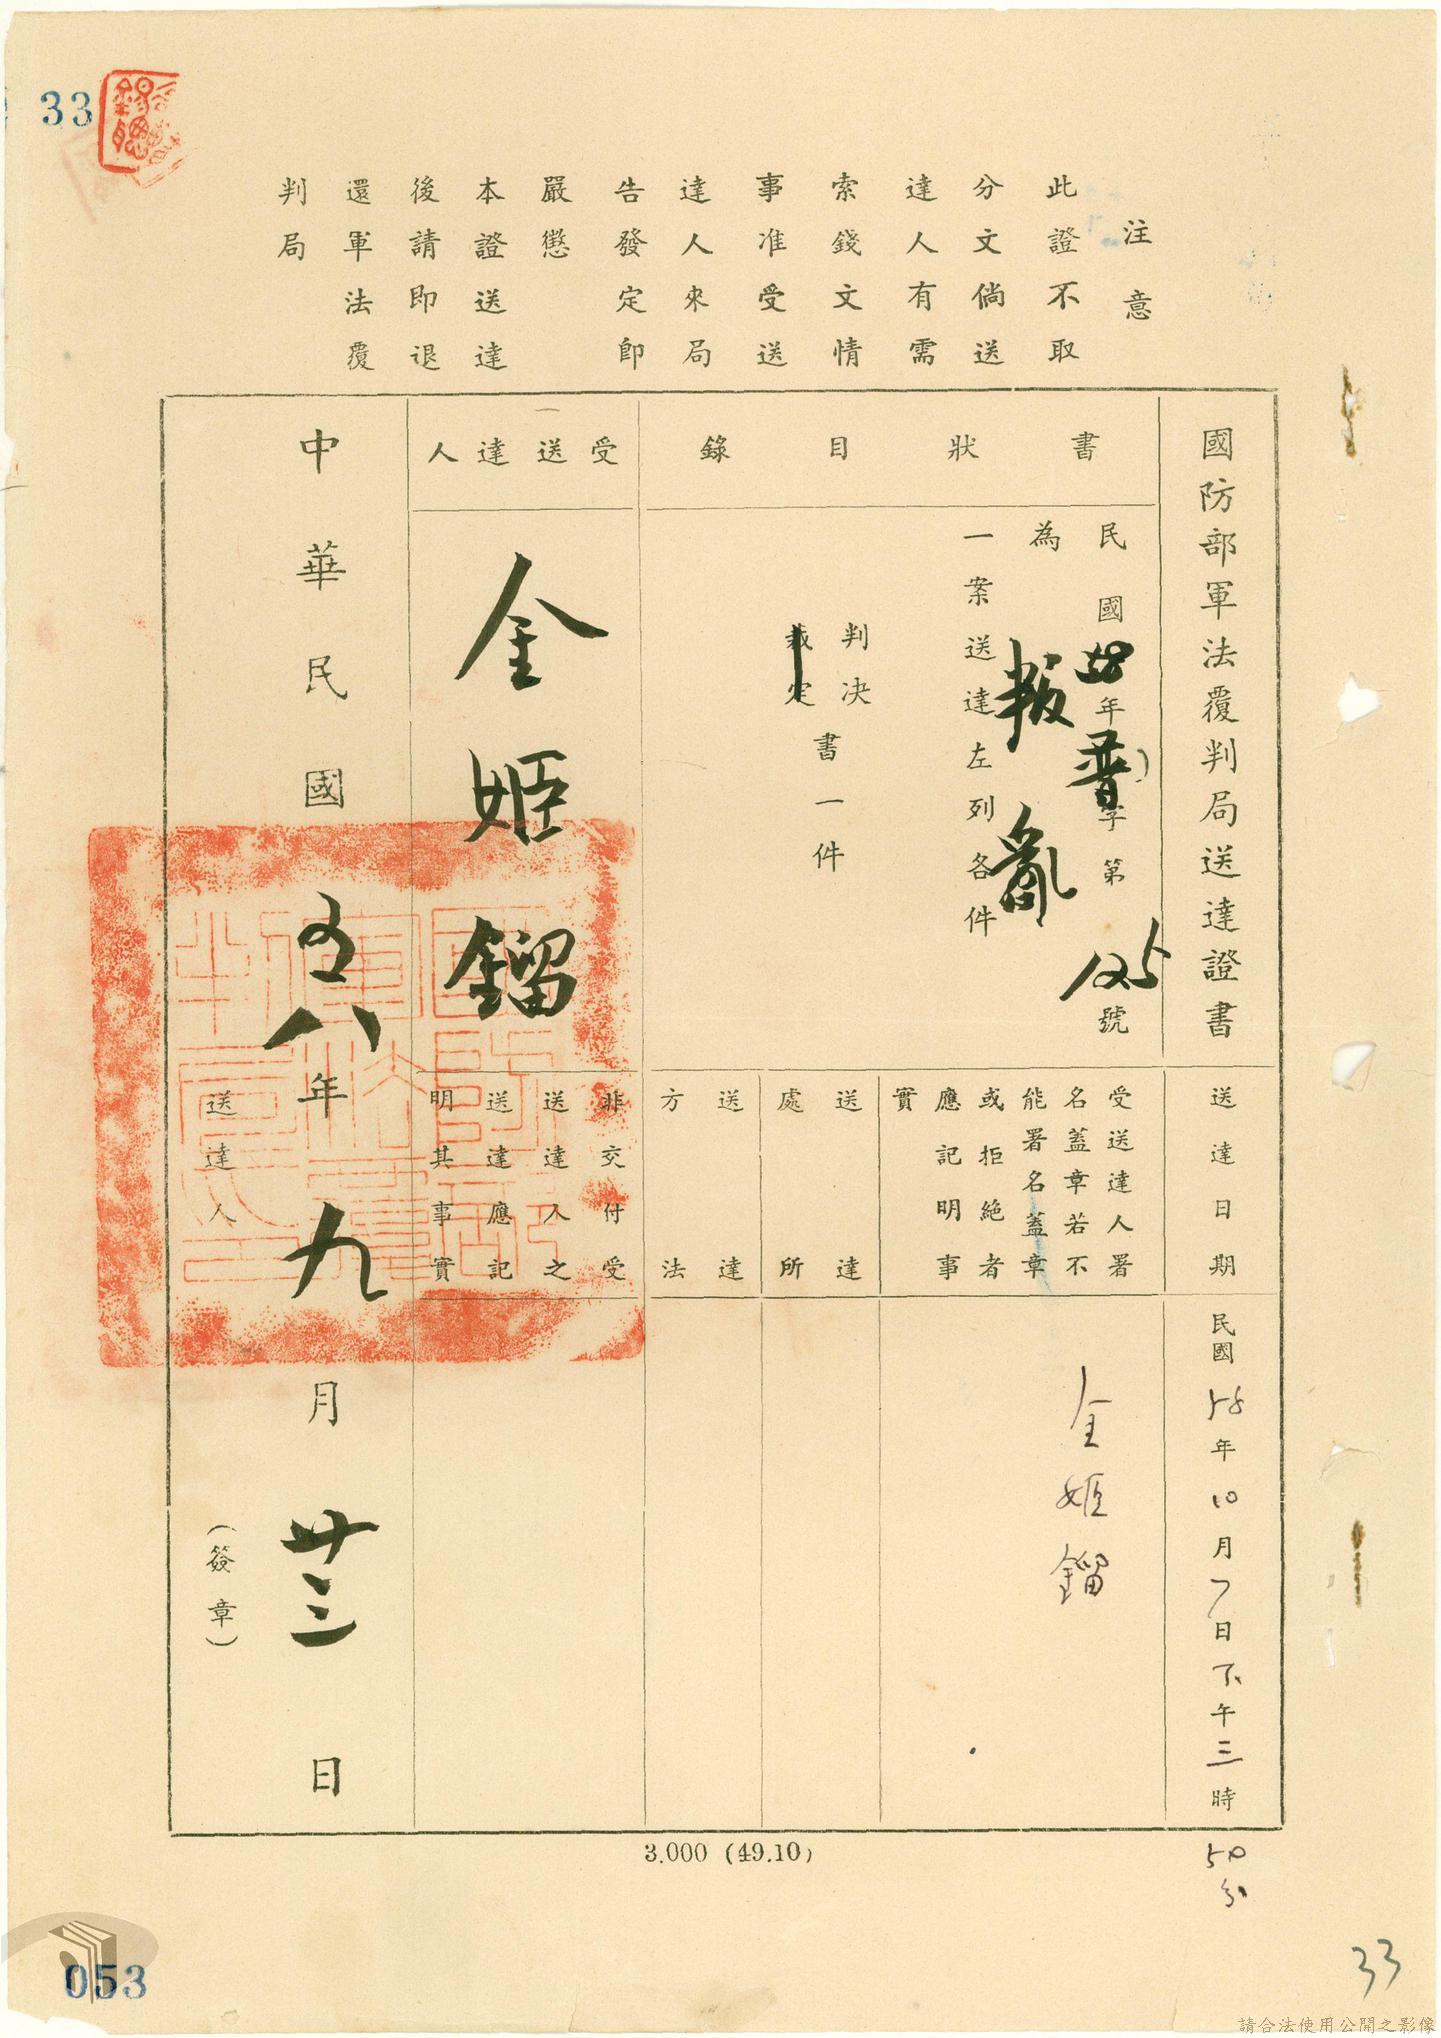 33
注意
此證不取
分文倘送
達人有需
索錢文情
事准受送
達人來局
告發定即
嚴懲
本證送達
後請即退
還軍法覆
判局
國防部軍法覆判局送達證書
書狀目錄
民國58年普字第125號
為叛亂
一案送達左列各件
判决
裁定
書一件
受送達人
金姬鎦
送達日期
民國58年10月7日下午三時
50分
受送達人署
名蓋章若不
能署名蓋章
或拒絕者
應記明事
實
金姬鎦
送達
處所
送達
方法
非交付受
送達人之
送達應記
明其事實
中華民國五八年九月廿三日
送達人
(簽章)
3.000 (49.10)
33
053
請合法使用公開之影像